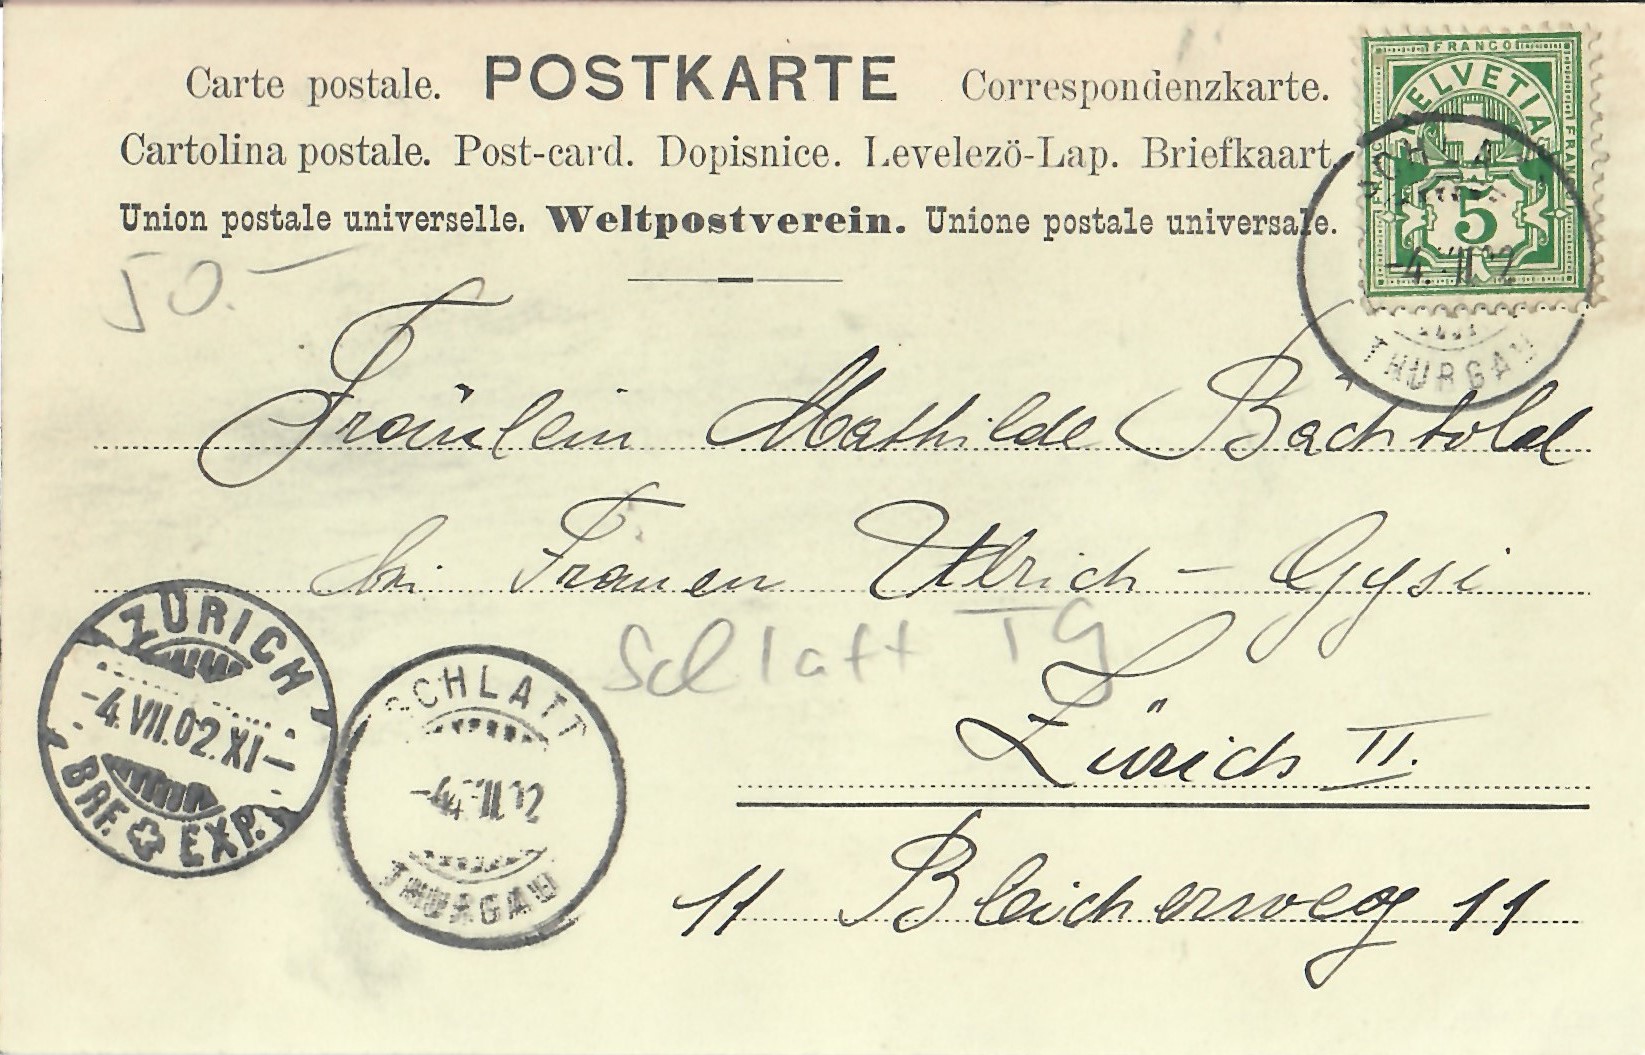 Carte postale. POSTKARTE Correspondenzkarte.
Cartolina postale. Post-card. Dopisnice. Levelezö-Lap. Briefkaart.
Union postale universelle. Weltpostverein. Unione postale universale.
FRANCO
HELVETIA
FRANCO
5
THURGAU
50.-
Fräulein Mathilde Bächtold
bei Frauen Ulrich - Gysi
Schlatt TG
Zürich II.
11 Bleicherweg 11
ZÜRICH
-4.VII.02.XI-
BRF. EXP.
SCHLATT
THURGAU